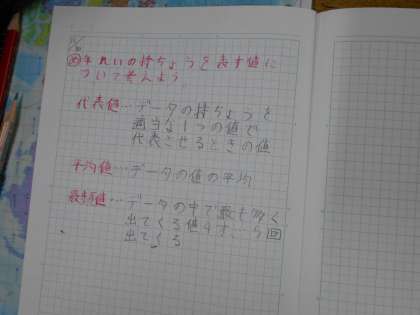 め それいの特ちょうを表す値に
ついて考えよう
代表値…データの特ちょうを
適当な1つの値で
代表させるときの値
平均値…データの値の平均
最ひん値…データの中で最も多く
出てくる値
出てくる 回